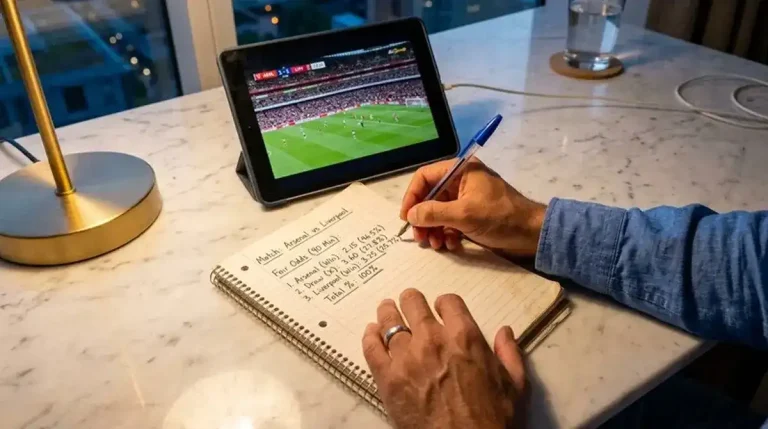 Match: Arsenal vs Liverpool
Fair Odds (90 Min)
1. Arsenal (Win): 2.15 (46.5%)
2. Draw (X): 3.60 (27.8%)
3. Liverpool (Win): 3.75 (25.7%)
Total %: 100%